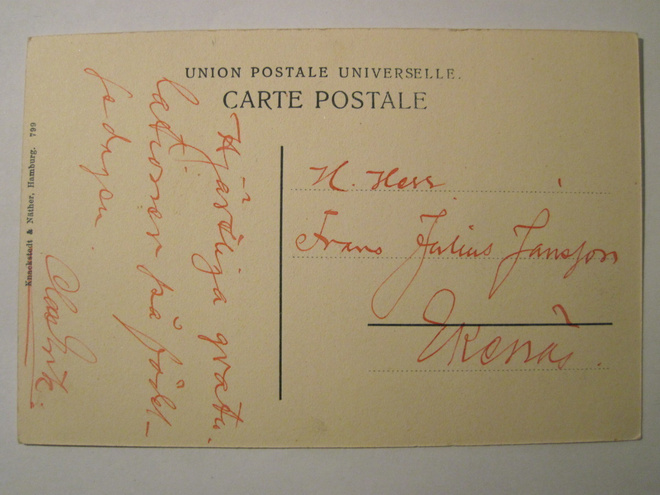 UNION POSTALE UNIVERSELLE.
CARTE POSTALE
Hjärtliga gratu-
lationer på födel-
sedagen.
H. Herr
Frans Julius Jansson
Ekenäs.
Knackstedt & Näther, Hamburg. 799